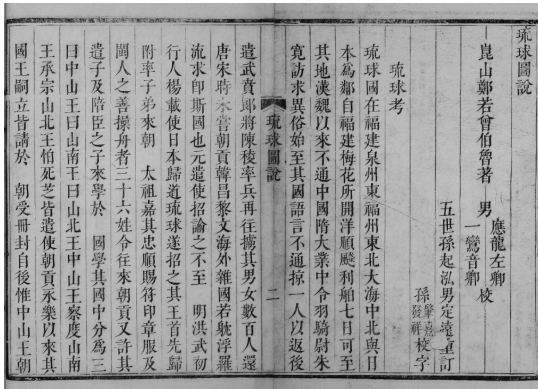 琉球圖說
崑山鄭若曾伯魯著 男 應龍左卿 一鸞音卿 校
五世孫起泓男定遠重訂
孫 肇嘉 發祥 校字
琉球考
琉球國在福建泉州東福州東北大海中北與日
本為鄰自福建梅花所開洋順颷利舶七日可至
其地漢魏以來不通中國隋大業中令羽騎尉朱
寬訪求異俗始至其國語言不通掠一人以返後
琉球圖說 二
遣武賁郎將陳稜率兵再往擄其男女數百人還
唐宋時未嘗朝貢韓昌黎文海外雜國若躭浮羅
流求卽斯國也元遣使招諭之不至 明洪武初
行人楊載使日本歸道琉球遂招之其王首先歸
附率子弟來朝 太祖嘉其忠順賜符印章服及
閩人之善操舟者三十六姓令往來朝貢又許其
遣子及陪臣之子來學於 國學其國中分為三
曰中山王曰山南王曰山北王中山王察度山南
王承宗山北王怕死芝皆遣使朝貢永樂以來其
國王嗣立皆請於 朝受冊封自後惟中山王朝